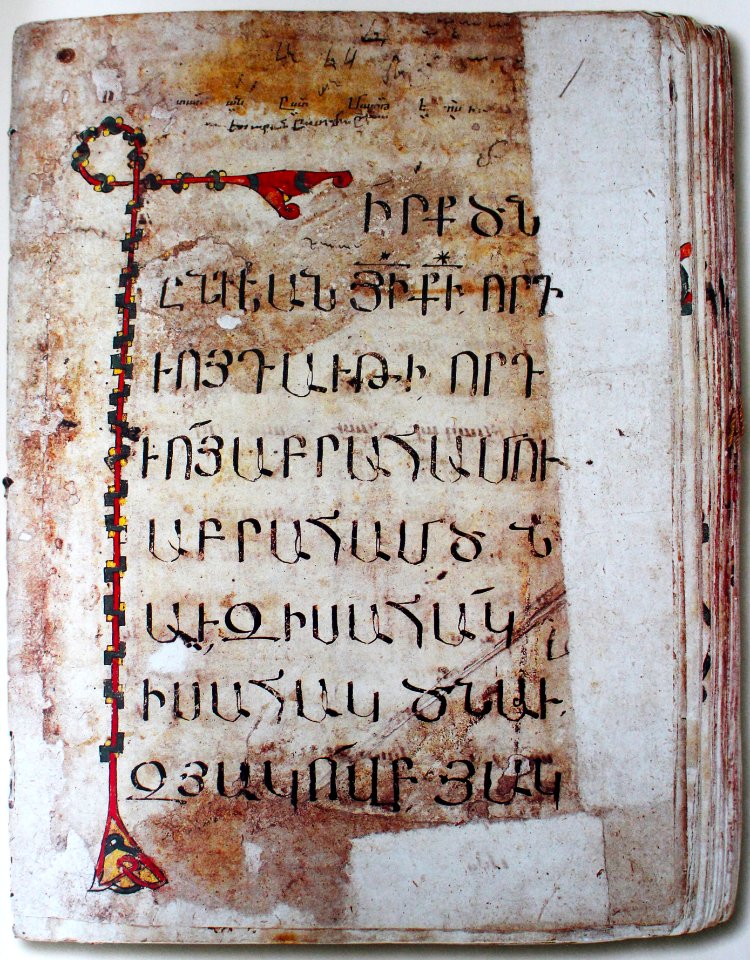 ԳԻՐՔ ԾՆ
ԸՆԴԵԱՆ ՅԻ ՔԻ, ՈՐԴ
ՒՈՅ ԴԱՒԹԻ, ՈՐԴ
ՒՈՅ ԱԲՐԱՀԱՄՈՒ
ԱԲՐԱՀԱՄ ԾՆ
ԱՒ, ԶԻՍԱՀԱԿ
ԻՍԱՀԱԿ ԾՆԱՒ
ԶՅԱԿՈՎԲ, ՅԱԿ